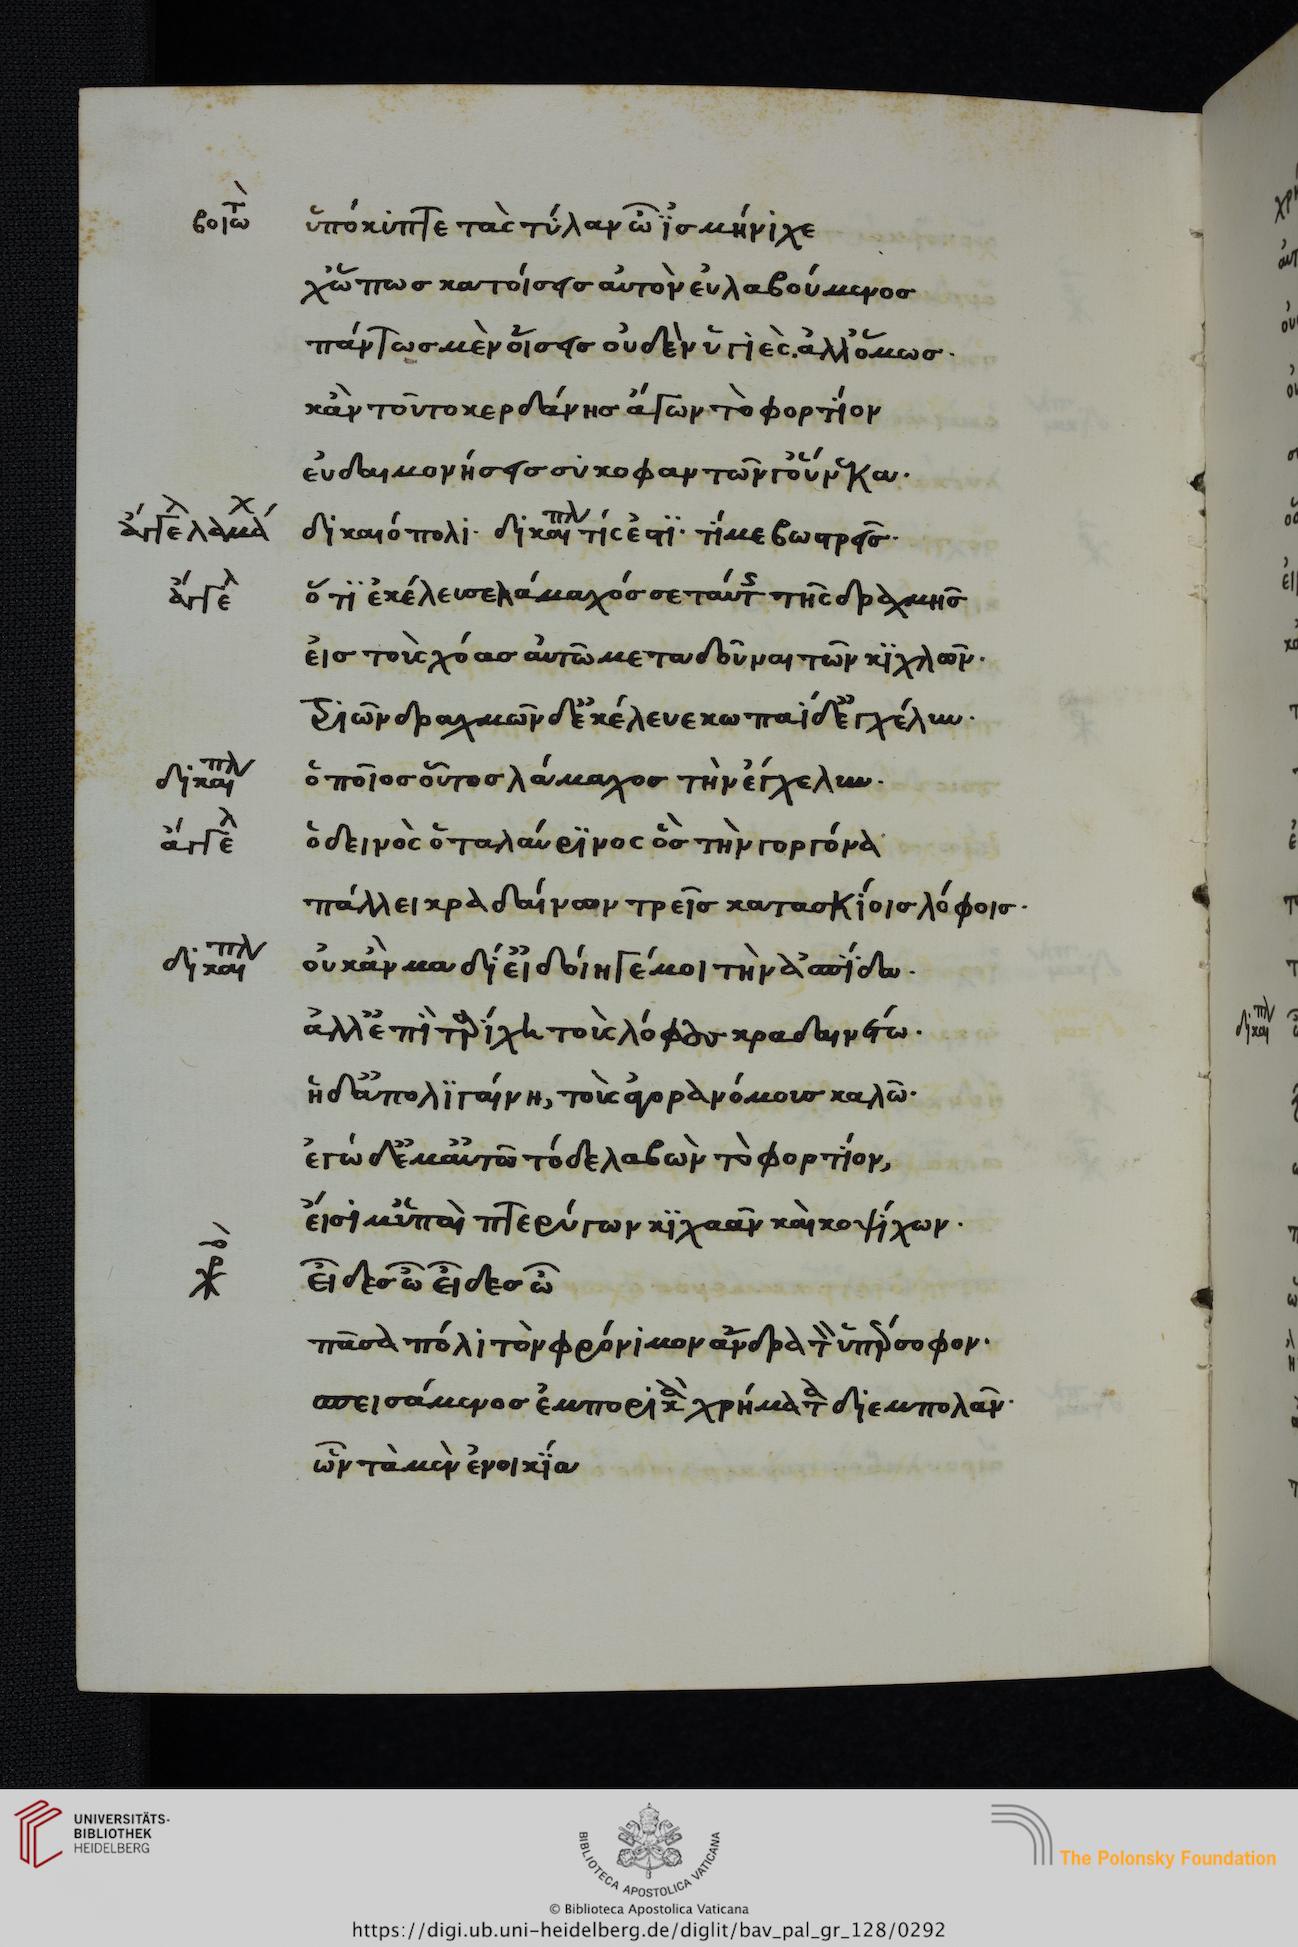 βοιωτ ὑπόκιπτε τὰς τύλαν ὦ ἰσμήνιχε
χὤπως κατοίσεις αὐτὸν εὐλαβούμενος
πάντως μὲν οἴσεις οὐδὲν ὑγιές. ἀλλ' ὅμως·
κἂν τοῦτο κερδάνης ἄγων τὸ φορτίον
εὐδαιμονήσεις συκοφαντῶν γ' οὕνεκα·
ἄγγελ λαμάχ δικαιόπολι· δικαιπλ τίς ἐστι· τί με βωστρεῖς·
ἄγγελ ὅ τι ἐκέλευσε λάμαχός σε ταύτης τῆς δραχμῆς
εἰς τοὺς χόας αὐτῶ μεταδοῦναι τῶν κιχλῶν·
τριῶν δραχμῶν δ' ἐκέλευε κωπαίδ' ἔγχελυν·
δικαιπλ ὁ ποῖος οὗτος λάμαχος τὴν ἔγχελυν·
ἄγγελ ὁ δεινὸς ὁ ταλαύρινος ὃς τὴν γοργόνα
πάλλει κραδαίνων τρεῖς κατασκίοις λόφοις·
δικαιπλ οὐκ ἂν μὰ δί' εἰ δοίη γέ μοι τὴν ἀσπίδα·
ἀλλ' ἐπὶ ταρίχει τοὺς λόφους κραδαινέτω·
ἢ δ' ἀπολιγαίνη, τοὺς ἀγορανόμους καλῶ·
ἐγὼ δ' ἐμαυτῶ τόδε λαβὼν τὸ φορτίον,
εἴσιμ' ὑπαὶ πτερύγων κιχλᾶν καὶ κοψίχων·
χορ εἶδες ὦ εἶδες ὦ
πᾶσα πόλι τὸν φρόνιμον ἄνδρα τὸν ὑπέρσοφον·
σπεισάμενος ἐμπορικὰ χρήματα διεμπολᾶν·
ὧν τὰ μὲν ἐν οἰκία
δικαιπλ
UNIVERSITÄTS-
BIBLIOTHEK
HEIDELBERG
BIBLIOTECA APOSTOLICA VATICANA
The Polonsky Foundation
© Biblioteca Apostolica Vaticana
https://digi.ub.uni-heidelberg.de/diglit/bav_pal_gr_128/0292